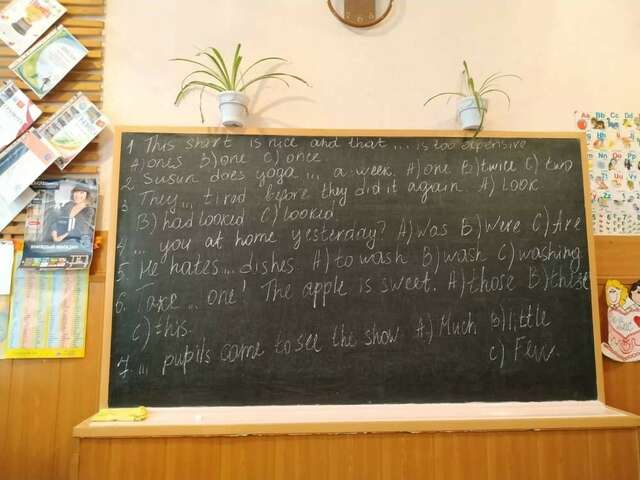 1 This shirt is nice and that ... is too expensive
A) ones B) one C) once
2. Susan does yoga ... a week. A) one B) twice C) two
3 They ... tired before they did it again. A) Look
B) had looked. C) looked.
4 ... you at home yesterday? A) Was B) Were C) Are
5. He hates ... dishes A) to wash B) wash C) washing
6. Take ... one! The apple is sweet. A) those B) these
C) this.
7. ... pupils came to see the show A) Much B) little
C) Few.